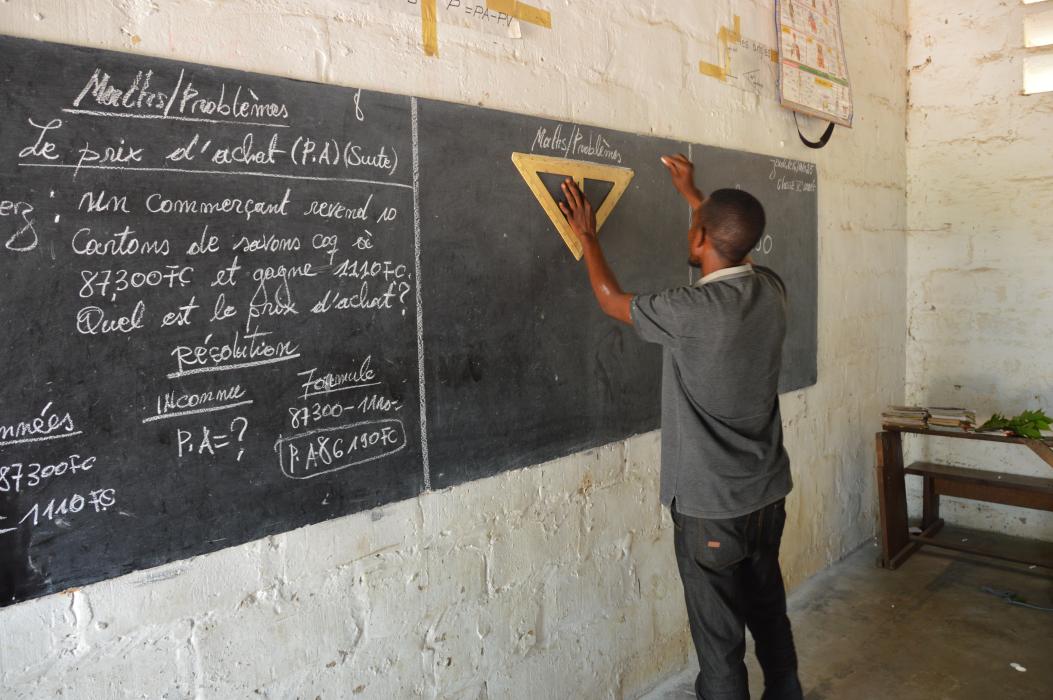 P=PA-PV
Maths/Problèmes
8
Le prix d'achat (P.A) (Suite)
: Un commerçant revend 10
Cartons de savons coq à
87,300FC et gagne 1110FC.
Quel est le prix d'achat?
Résolution
nnées
Inconnue
Formule
87300FC
P.A=?
87300-1110=
- 1110FC
P.A 86190FC
Maths/Problèmes